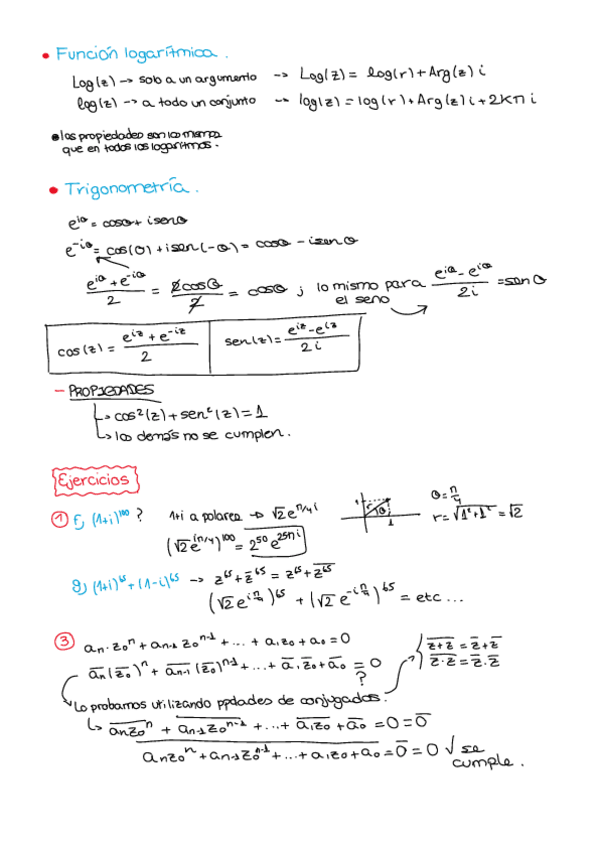 • Función logarítmica.
Log(z) → solo a un argumento → Log(z) = log(r) + Arg(z) i
log(z) → a todo un conjunto → log(z) = log(r) + Arg(z) i + 2Kπ i
• las propiedades son las mismas
que en todos los logaritmos.
• Trigonometría.
e^{iθ} = cosθ + i senθ
e^{-iθ} = cos(θ) + i sen(-θ) = cosθ - i senθ
(e^{iθ} + e^{-iθ})/2 = 2cosθ/2 = cosθ ; lo mismo para el seno (e^{iθ} - e^{iθ})/2i = senθ
cos(z) = (e^{iz} + e^{-iz})/2 sen(z) = (e^{iz} - e^{iz})/2i
- PROPIEDADES
↳ cos²(z) + sen²(z) = 1
↳ las demás no se cumplen.
Ejercicios
① f) (1+i)^{100} ? 1+i a polares → √2 e^{π/4 i} θ = π/4
(√2 e^{iπ/4})^{100} = 2^{50} e^{25π i} r = √(1²+1²) = √2
g) (1+i)^{65} + (1-i)^{65} → z^{65} + z̄^{65} = z^{65} + \overline{z^{65}}
(√2 e^{i π/4})^{65} + (√2 e^{-i π/4})^{65} = etc...
③ aₙ·z₀ⁿ + aₙ₋₁ z₀ⁿ⁻¹ + ... + a₁z₀ + a₀ = 0
\overline{z+z} = z̄ + z̄
āₙ(z̄₀)ⁿ + āₙ₋₁(z̄₀)ⁿ⁻¹ + ... + ā₁z̄₀ + ā₀ = 0 ?
\overline{z·z} = z̄·z̄
Lo probamos utilizando ppdades de conjugados.
↳ \overline{aₙz₀ⁿ} + \overline{aₙ₋₁z₀ⁿ⁻¹} + ... + \overline{a₁z₀} + ā₀ = 0 = 0̄
\overline{aₙz₀ⁿ + aₙ₋₁z₀ⁿ⁻¹ + ... + a₁z₀ + a₀} = 0̄ = 0 √ se cumple.